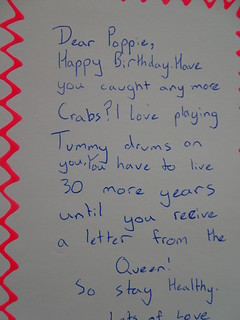 Dear Poppie,
Happy Birthday. Have
you caught any more
Crabs? I love playing
Tummy drums on
you. You have to live
30 more years
until you receive
a letter from the
Queen!
So stay Healthy.
Lots of Love